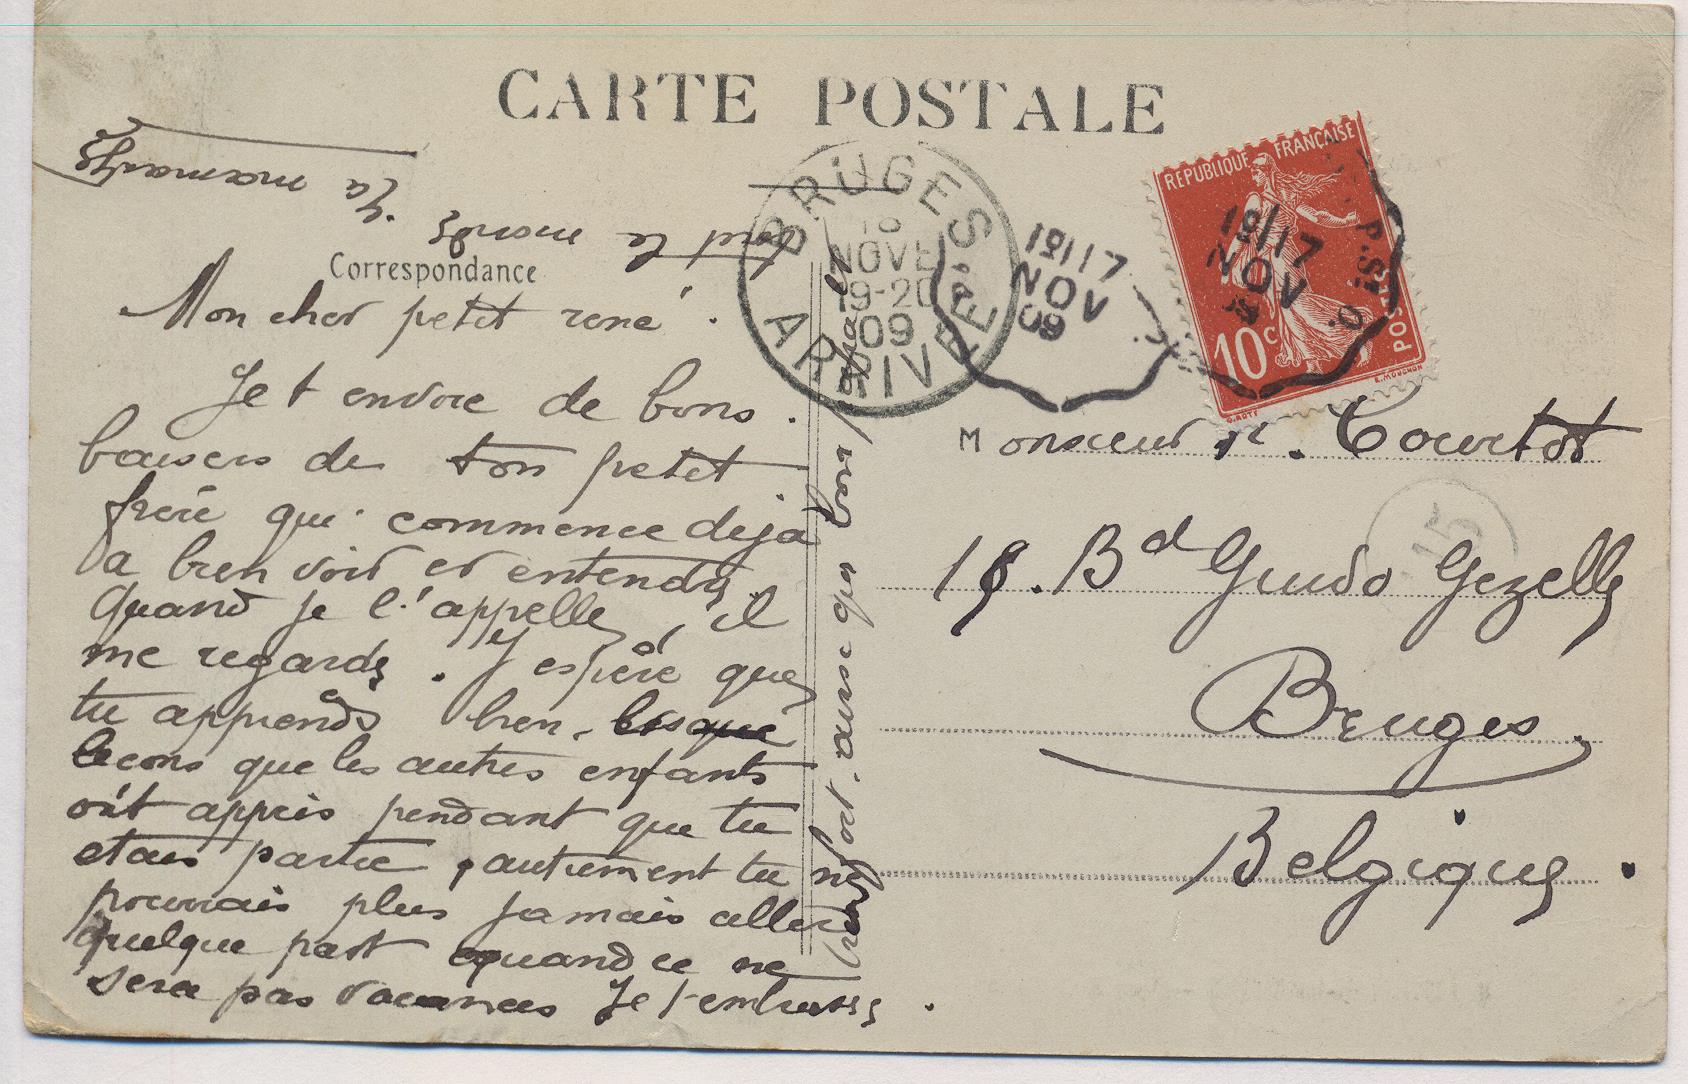 CARTE POSTALE
Correspondance
Mon cher petit rené.
Je t envoie de bons
baisers de ton petit
frère qui commence deja
a bien voir et entendre.
Quand je l'appelle, il
me regarde. J'espère que
tu apprends bien les que
lecons que les autres enfants
ont appris pendant que tu
etais partie, autrement tu ne
pourrais plus jamais aller
quelque part quand ce ne
sera pas vacances Je t'embrasse
bien fort. ainsi que bon papa et
tout le monde.
Ta maman
BRUGES
18
NOVE
19-20
09
ARRIVÉE
18/17
NOV
09
REPUBLIQUE FRANÇAISE
18/17
NOV
10c
POSTES
O. ROTY
E. MOUCHON
Monsieur R. Courtot
15
18. Bd Guido Gezelle
Bruges.
Belgique.